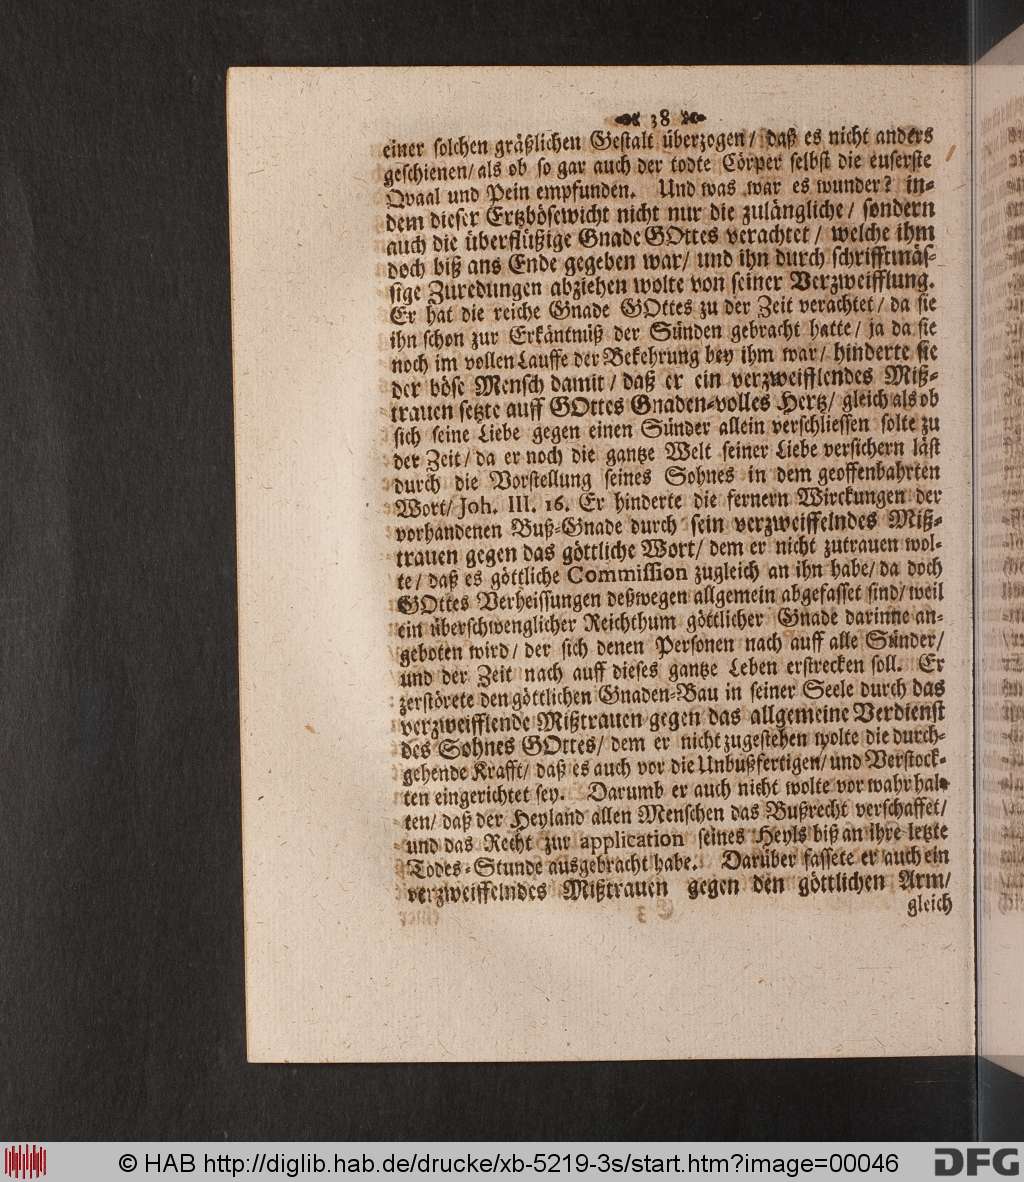 38
einer solchen gräßlichen Gestalt überzogen / daß es nicht anders
geschienen / als ob so gar auch der todte Cörper selbst die euserste
Qvaal und Pein empfunden. Und was war es wunder? in-
dem dieser Ertzbösewicht nicht nur die zulängliche / sondern
auch die überflüßige Gnade GOttes verachtet / welche ihm
doch biß ans Ende gegeben war / und ihn durch schrifftmäs-
sige Zuredungen abziehen wolte von seiner Verzweifflung.
Er hat die reiche Gnade GOttes zu der Zeit verachtet / da sie
ihn schon zur Erkäntnüß der Sünden gebracht hatte / ja da sie
noch im vollen Lauffe der Bekehrung bey ihm war / hinderte sie
der böse Mensch damit / daß er ein verzweifflendes Miß-
trauen setzte auff GOttes Gnaden-volles Hertz / gleich als ob
sich seine Liebe gegen einen Sünder allein verschliessen solte zu
der Zeit / da er noch die gantze Welt seiner Liebe versichern läst
durch die Vorstellung seines Sohnes in dem geoffenbahrten
Wort / Joh. III. 16. Er hinderte die fernern Wirckungen der
vorhandenen Buß-Gnade durch sein verzweiffelndes Miß-
trauen gegen das göttliche Wort / dem er nicht zutrauen wol-
te / daß es göttliche Commission zugleich an ihn habe / da doch
GOttes Verheissungen deßwegen allgemein abgefasset sind / weil
ein überschwenglicher Reichthum göttlicher Gnade darinne an-
geboten wird / der sich denen Personen nach auff alle Sünder /
und der Zeit nach auff dieses gantze Leben erstrecken soll. Er
zerstörete den göttlichen Gnaden-Bau in seiner Seele durch das
verzweifflende Mißtrauen gegen das allgemeine Verdienst
des Sohnes GOttes / dem er nicht zugestehen wolte die durch-
gehende Krafft / daß es auch vor die Unbußfertigen / und Verstock-
ten eingerichtet sey. Darumb er auch nicht wolte vor wahr hal-
ten / daß der Heyland allen Menschen das Bußrecht verschaffet /
und das Recht zur application seines Heyls biß an ihre letzte
Todes-Stunde ausgebracht habe. Darüber fassete er auch ein
verzweiffelndes Mißtrauen gegen den göttlichen Arm /
gleich
© HAB http://diglib.hab.de/drucke/xb-5219-3s/start.htm?image=00046
DFG